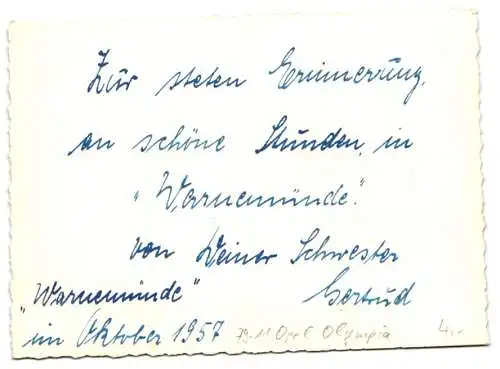 Zur steten Erinnerung,
an schöne Stunden, in
"Warnemünde".
von Deiner Schwester
Gertrud
"Warnemünde"
im Oktober 1957
Opel Olympia
4,-